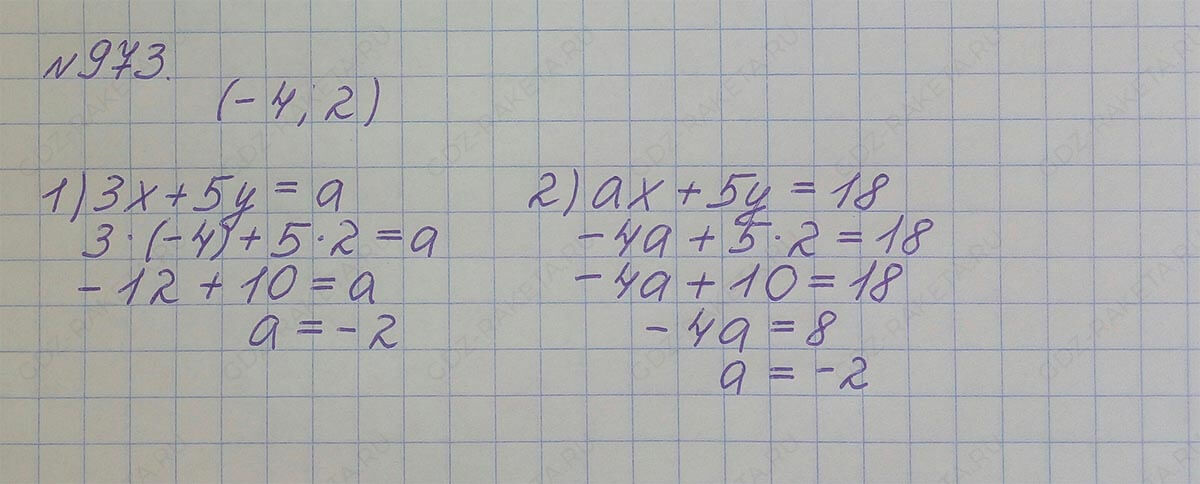 №973.
(-4; 2)
1) 3x + 5y = a
3·(-4) + 5·2 = a
-12 + 10 = a
a = -2
2) ax + 5y = 18
-4a + 5·2 = 18
-4a + 10 = 18
-4a = 8
a = -2
GDZ-RAKETA.RU